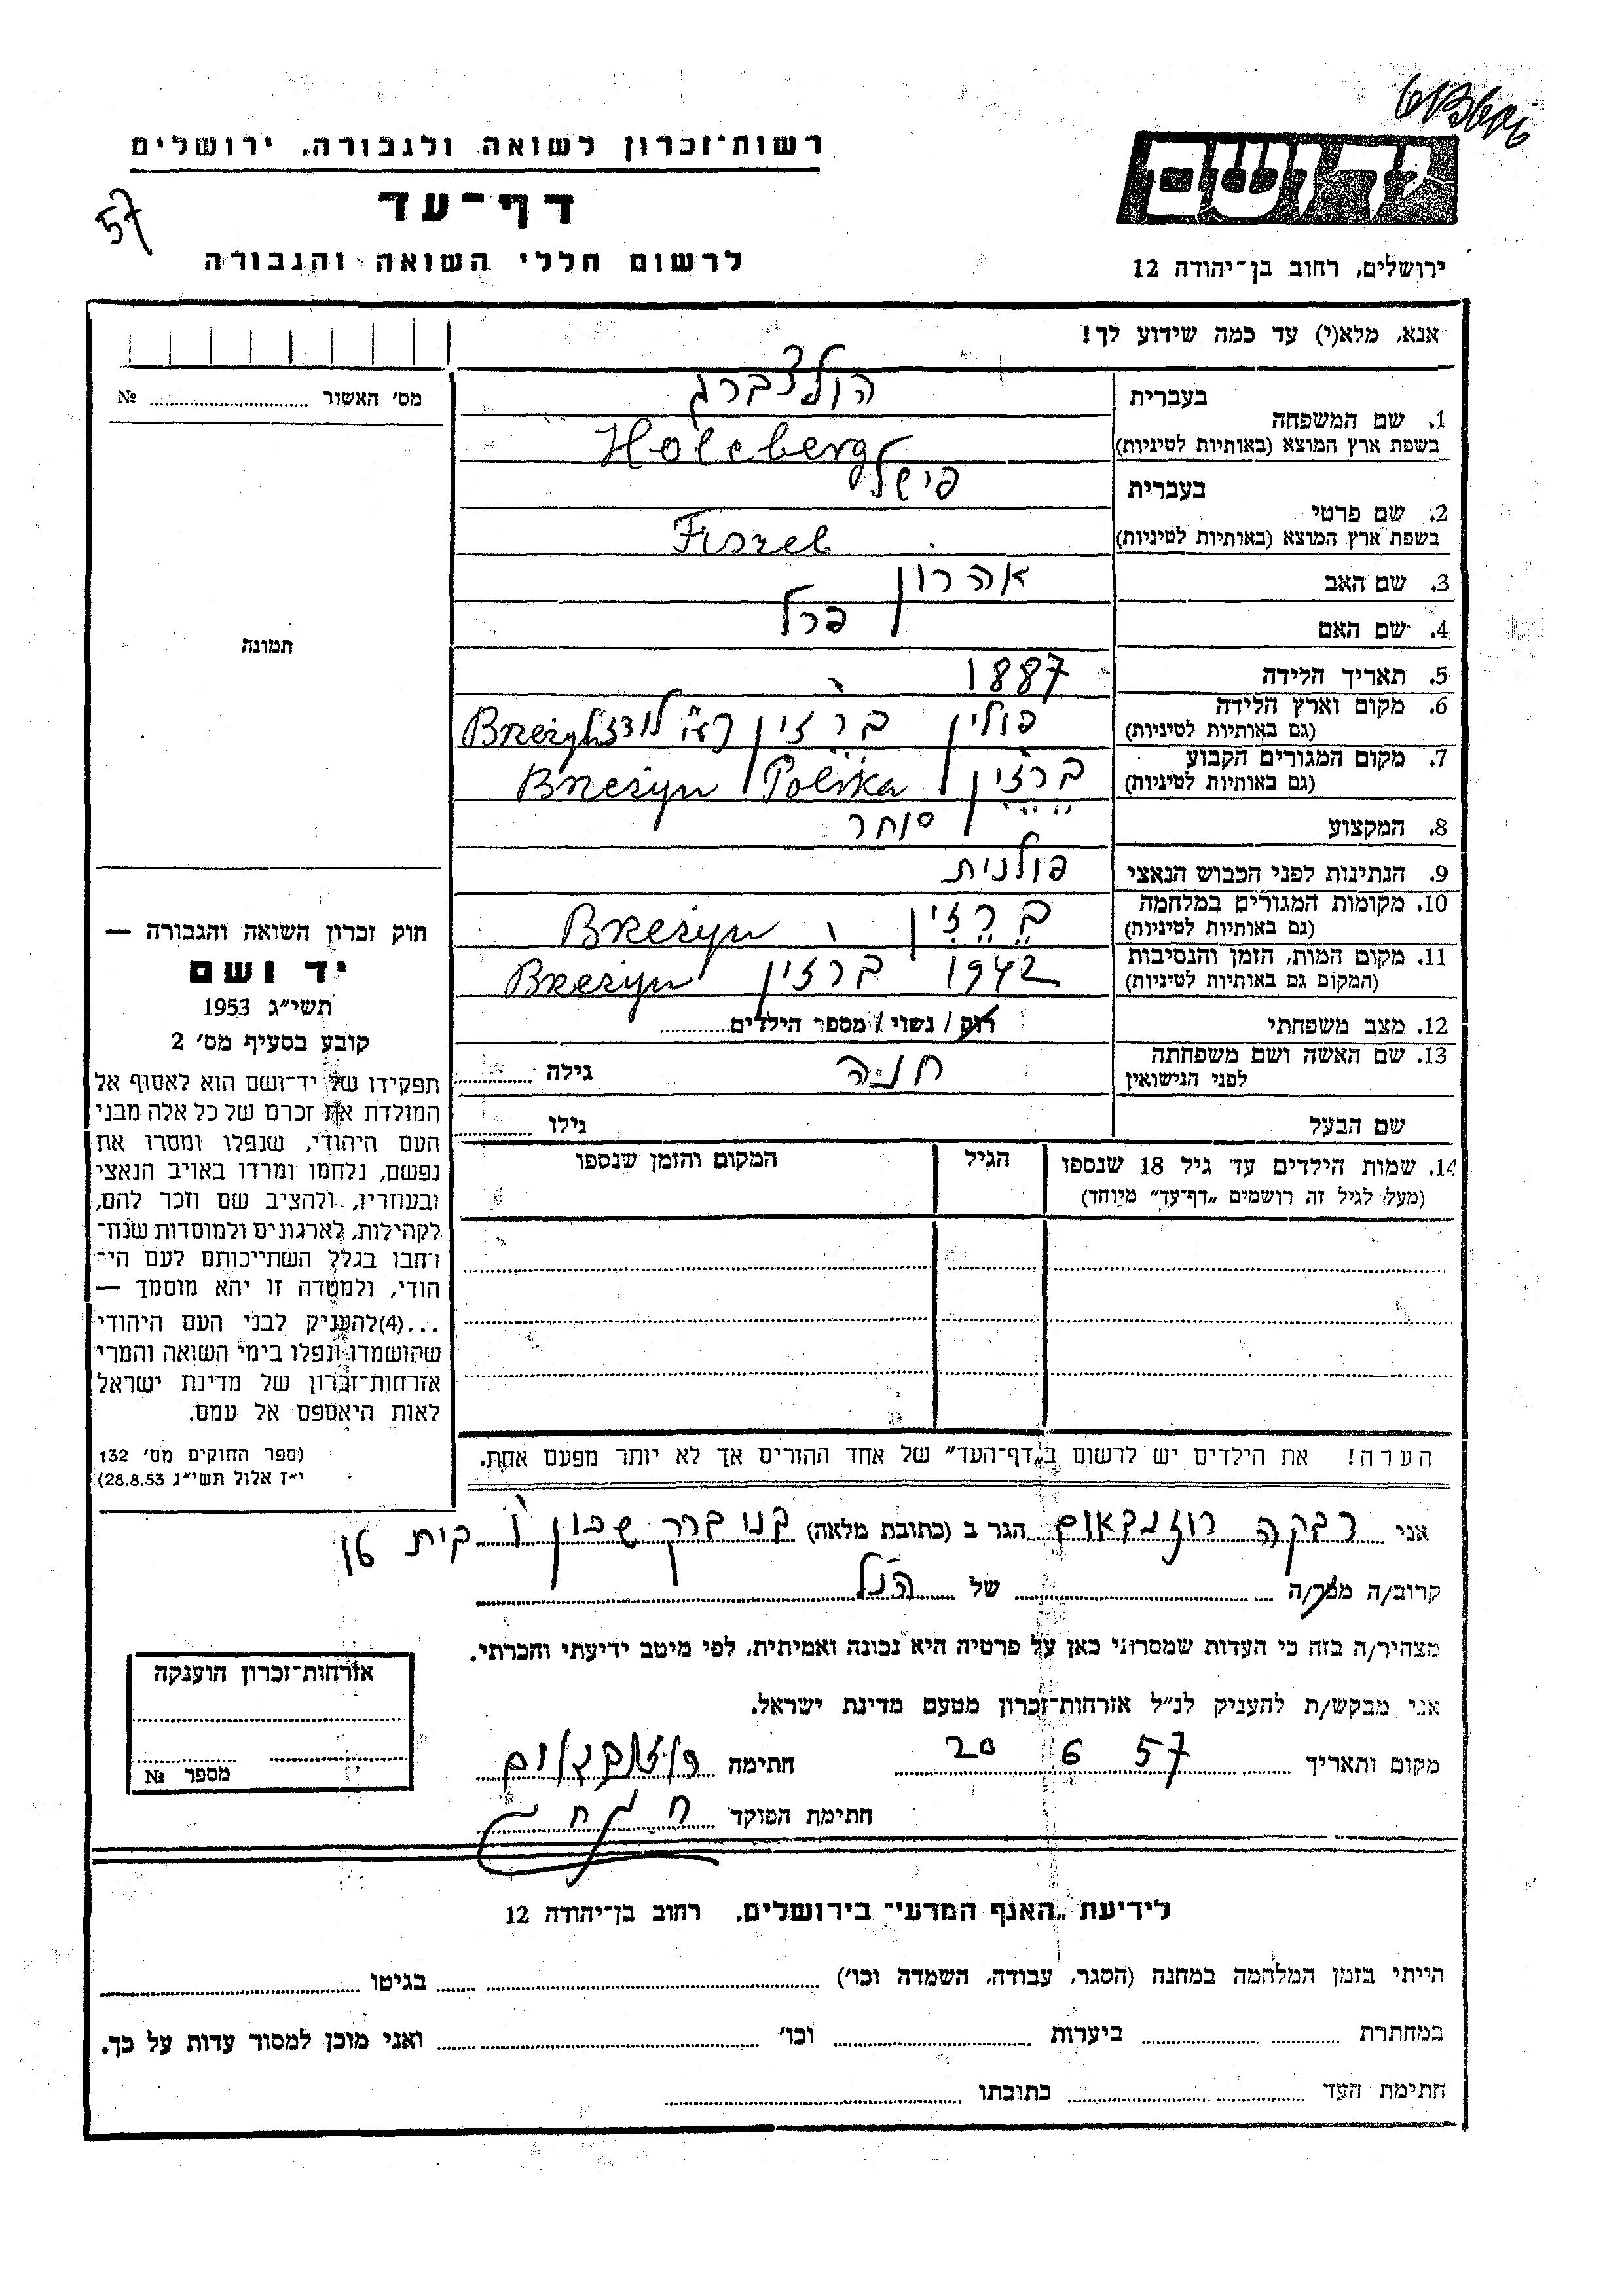 רשות־זכרון לשואה ולגבורה, ירושלים
דף־עד
57
לרשום חללי השואה והגבורה
ירושלים, רחוב בן־יהודה 12
אנא, מלא(י) עד כמה שידוע לך!
מס׳ האשור № ........
1. שם המשפחה
בעברית הולצברג
בשפת ארץ המוצא (באותיות לטיניות) Holcberg
2. שם פרטי
בעברית פישל
בשפת ארץ המוצא (באותיות לטיניות) Fiszel
3. שם האב אהרון
4. שם האם פרל
5. תאריך הלידה 1887
6. מקום וארץ הלידה פולין ברזין לודז
(גם באותיות לטיניות)
7. מקום המגורים הקבוע ברזין Polska
(גם באותיות לטיניות)
8. המקצוע סוחר
9. הנתינות לפני הכבוש הנאצי פולנית
10. מקומות המגורים במלחמה ברזין
(גם באותיות לטיניות)
11. מקום המות, הזמן והנסיבות 1942 ברזין
(המקום גם באותיות לטיניות)
12. מצב משפחתי רוק / נשוי / מספר הילדים ........
13. שם האשה ושם משפחתה חנה גילה ........
לפני הנישואין
שם הבעל גילו ........
14. שמות הילדים עד גיל 18 שנספו הגיל המקום והזמן שנספו
(מעל לגיל זה רושמים „דף־עד״ מיוחד)
הערה! את הילדים יש לרשום ב„דף־העד״ של אחד ההורים אך לא יותר מפעם אחת.
תמונה
חוק זכרון השואה והגבורה —
יד ושם
תשי״ג 1953
קובע בסעיף מס׳ 2
תפקידו של יד־ושם הוא לאסוף אל
המולדת את זכרם של כל אלה מבני
העם היהודי, שנפלו ומסרו את
נפשם, נלחמו ומרדו באויב הנאצי
ובעוזריו, ולהציב שם וזכר להם,
לקהילות, לארגונים ולמוסדות שנח־
רחבו בגלל השתייכותם לעם הי־
הודי, ולמטרה זו יהא מוסמך —
...(4) להעניק לבני העם היהודי
שהושמדו ונפלו בימי השואה והמרי
אזרחות־זכרון של מדינת ישראל
לאות היאספם אל עמם.
(ספר החוקים מס׳ 132
י״ז אלול תשי״ג 28.8.53)
אני רבקה רוזנבאום הגר ב (כתובת מלאה) בני ברק שכון ו בית
קרוב/ה מכר/ה ........ של הנ״ל
מצהיר/ה בזה כי העדות שמסרתי כאן על פרטיה היא נכונה ואמיתית, לפי מיטב ידיעתי והכרתי.
אני מבקש/ת להעניק לנ״ל אזרחות־זכרון מטעם מדינת ישראל.
מקום ותאריך 20 6 57 חתימה רוזנבאום
חתימת הפוקד
אזרחות־זכרון הוענקה
מספר №
לידיעת „האגף המדעי״ בירושלים, רחוב בן־יהודה 12
הייתי בזמן המלהמה במחנה (הסגר, עבודה, השמדה וכו׳) ........ בגיטו ........
במחתרת ........ ביערות ........ וכו׳ ........ ואני מוכן למסור עדות על כך.
חתימת העד ........ כתובתו ........